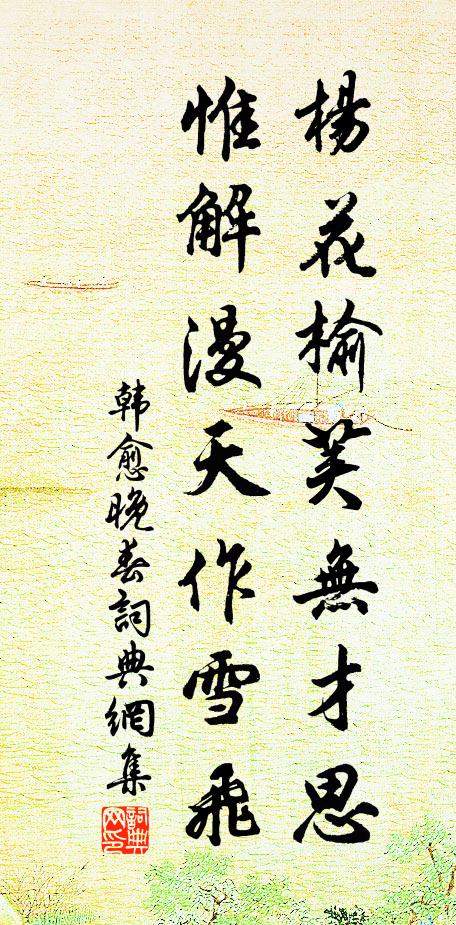 楊花榆荚無才思
惟解漫天作雪飛
韩愈晚春詞典網集
詞典
网印